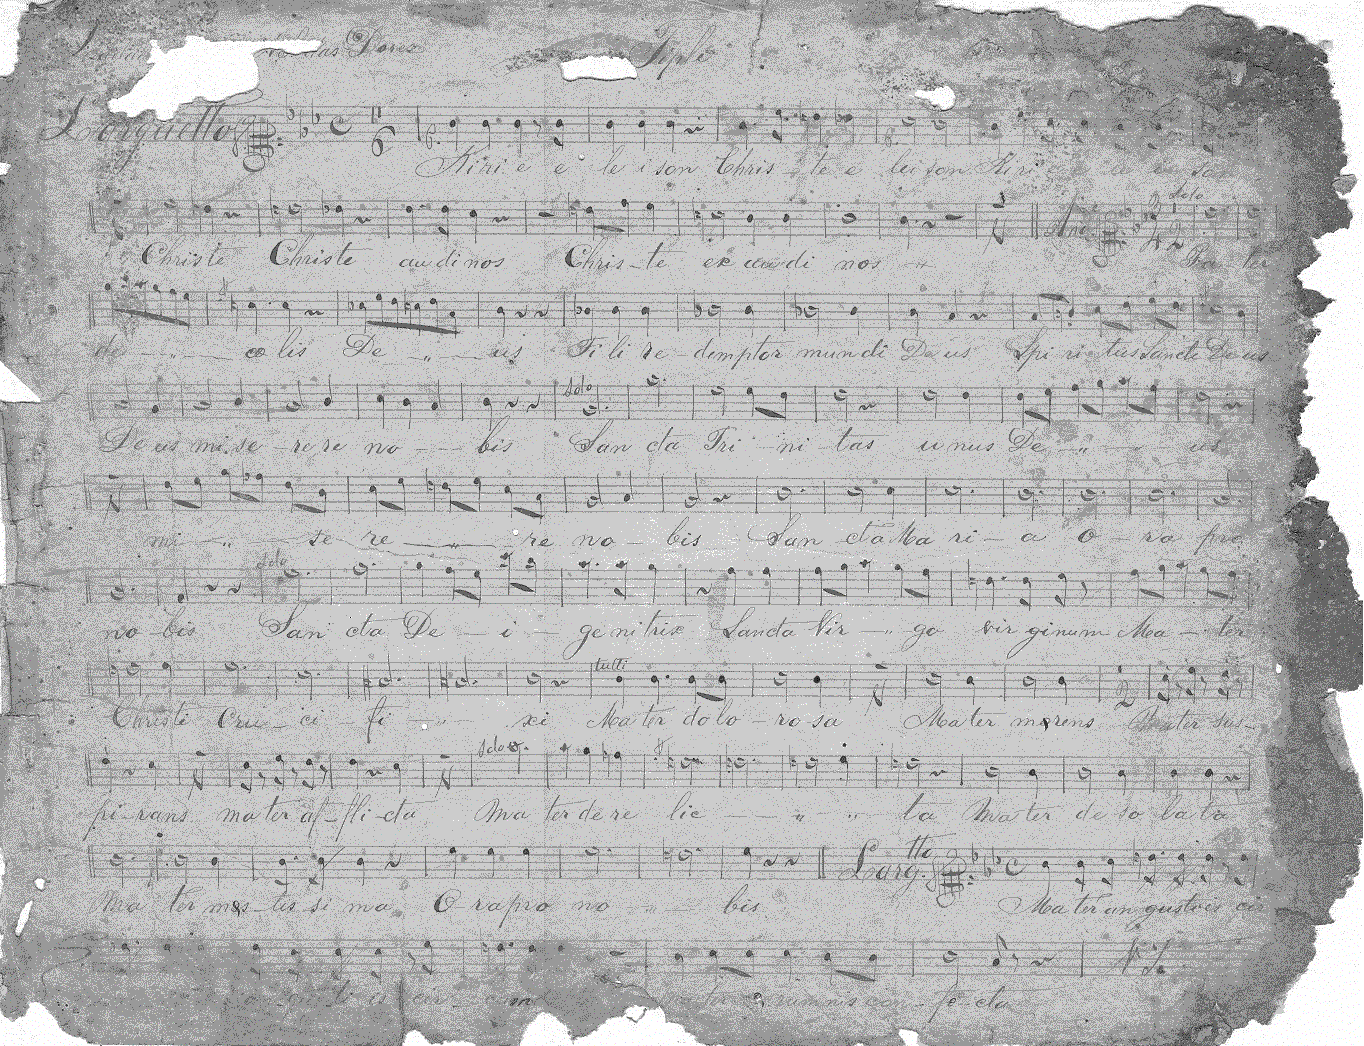 das Dores Tiple
Larguetto
Kiri e e le i son Chris - te e lei son Kiri e
solo
Christe Christe audi nos Chris - te ex audi nos
And. Pa ter
de coe lis De us Fi li re - demptor mundi De us Spi ri tus Sancte De us
solo
De us mi se - re re no - - bis San cta Tri ni tas unus De us
mi - se re - re no - bis San cta Ma ri - a o - ra pro
solo
no bis San cta De - i - ge nitrix Sancta Vir - go vir ginum Ma - ter
tutti
Christi Cru - ci - fi - xi Mater dolo - ro sa Mater merens Mater sus -
solo
pi - rans mater af - fli - cta Ma ter de re lic - - ta Ma ter de so la ta
Largtto
Ma ter mes - tis si ma O ra pro no - - bis Mater an gustiis cir
fe cta